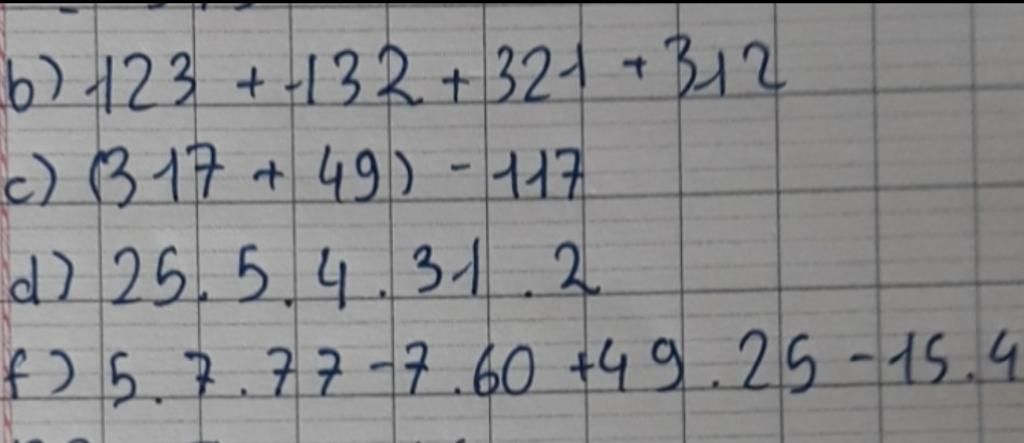 b) 123 + 132 + 321 + 312
c) (317 + 49) - 117
d) 25 . 5 . 4 . 31 . 2
f) 5 . 7 . 77 - 7 . 60 + 49 . 25 - 15 . 4